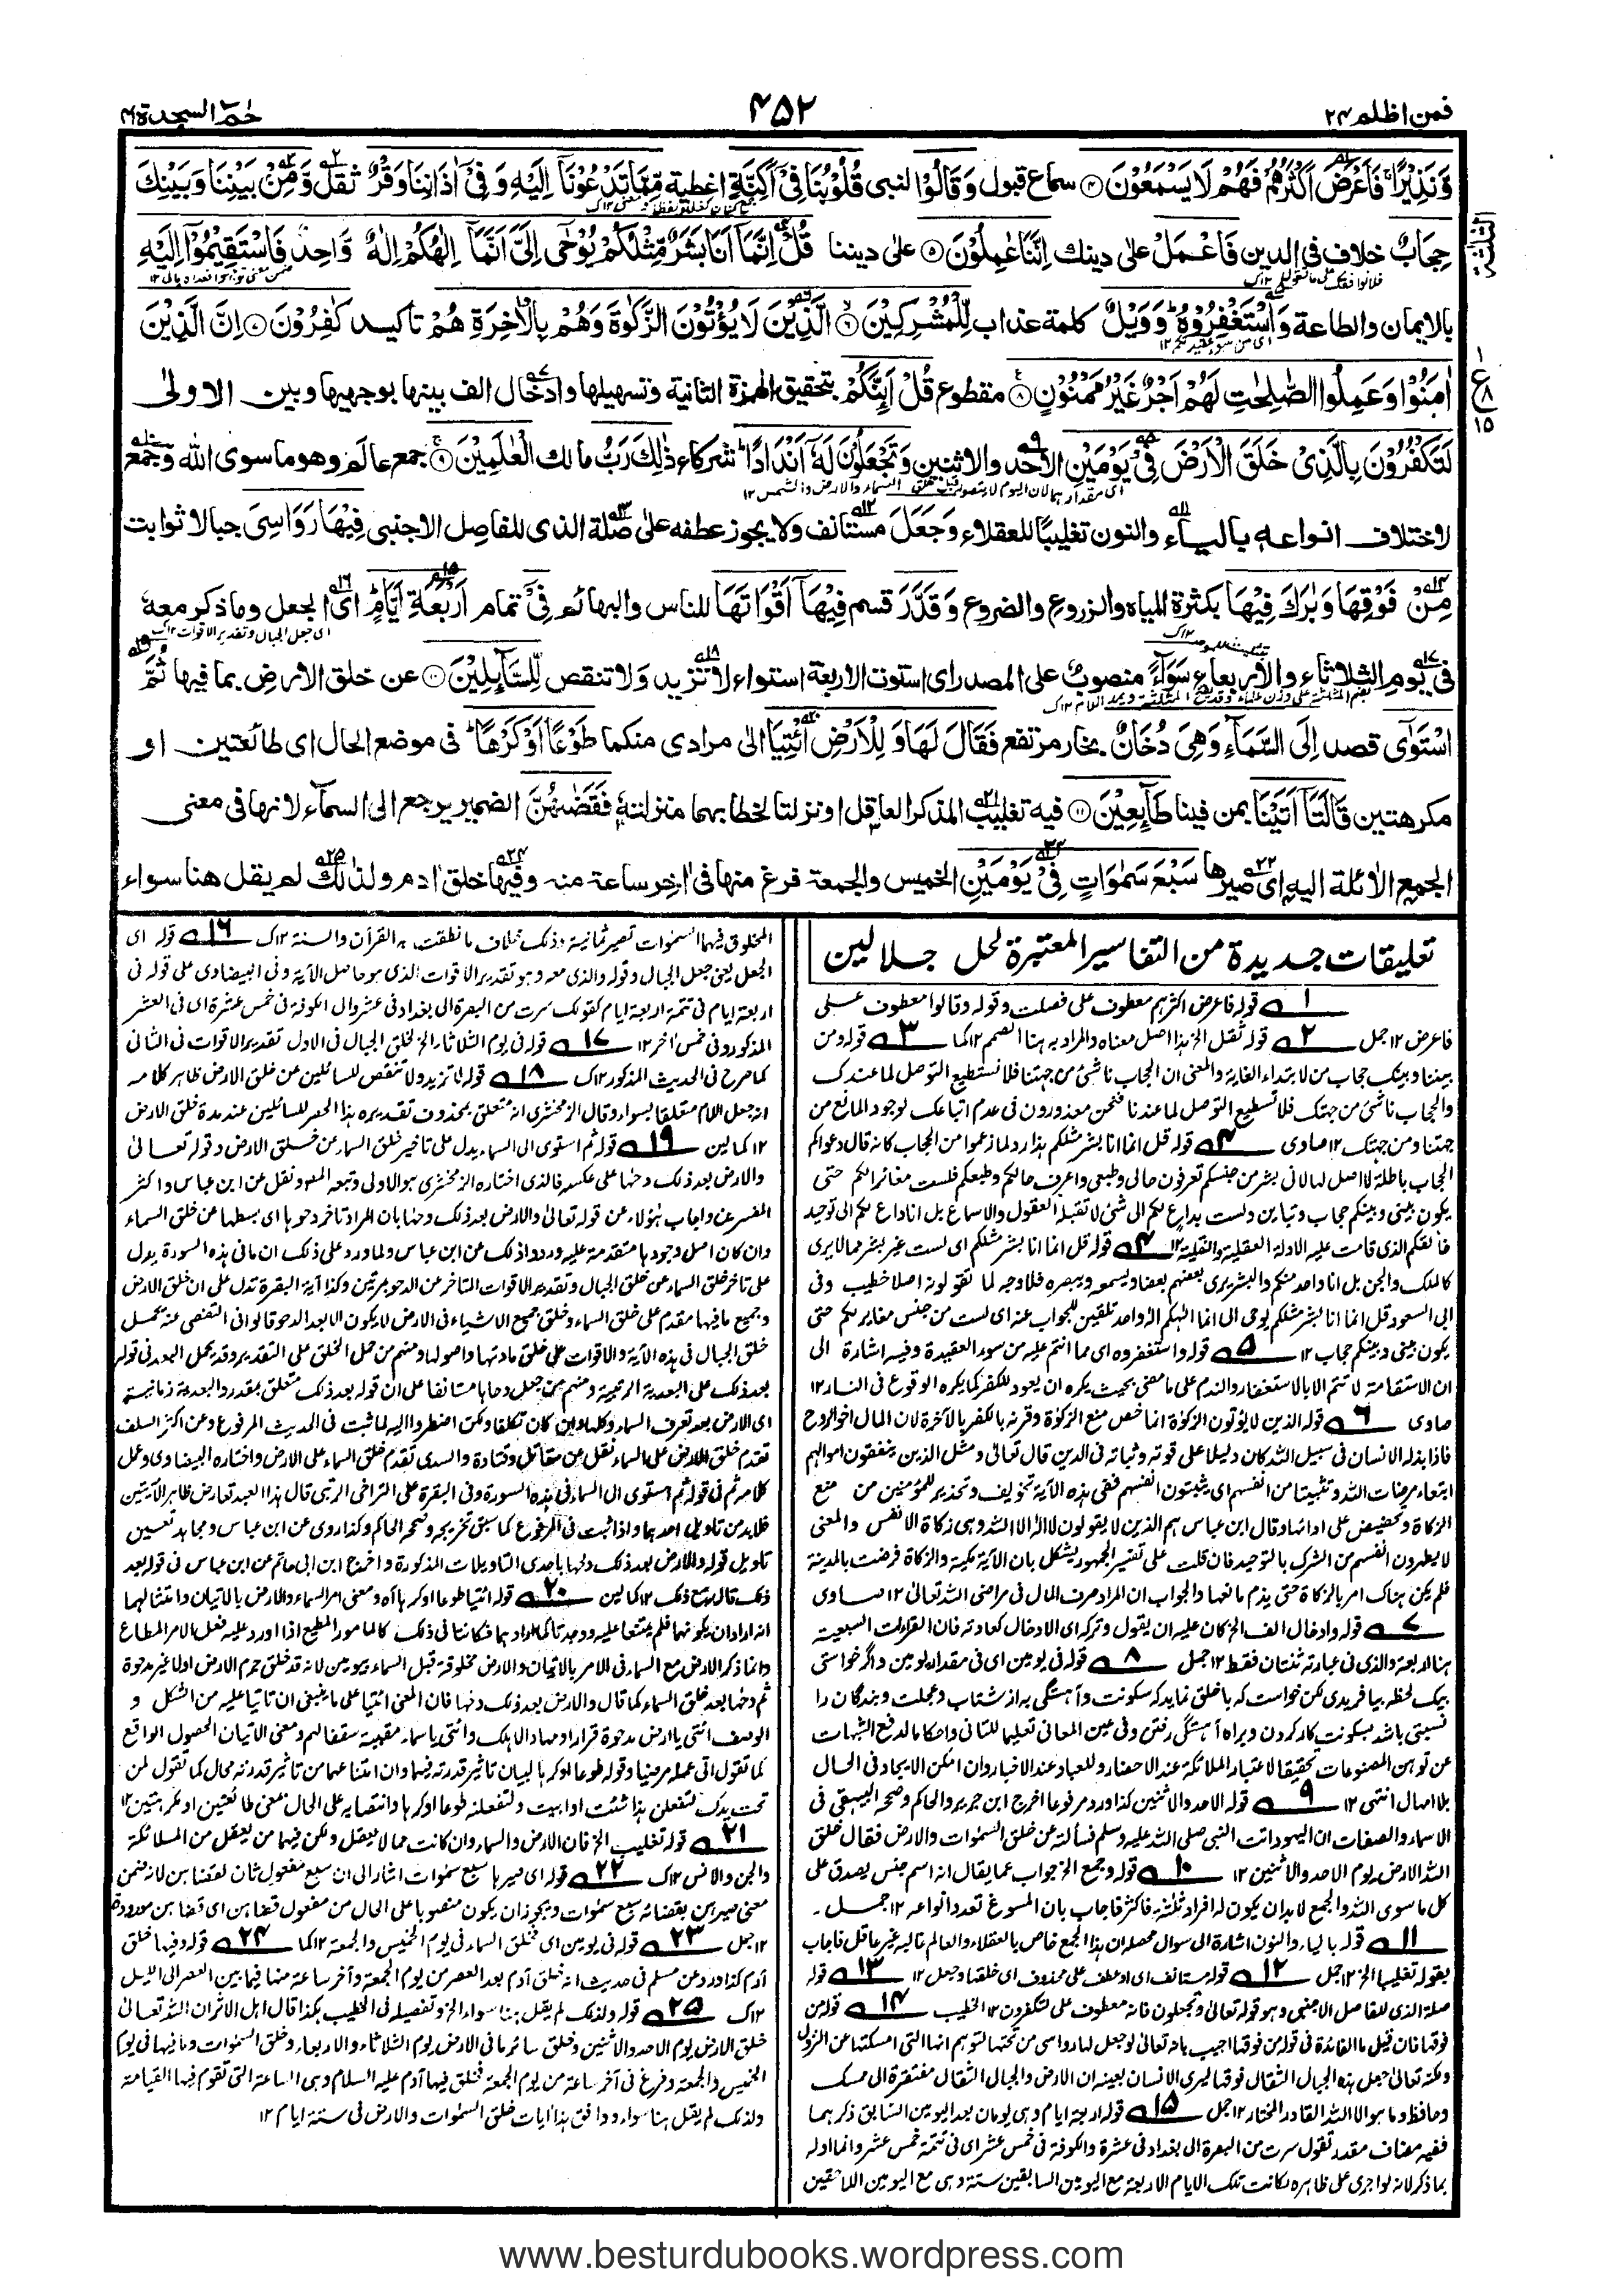 فمن اظلم ٢٤
٤٥٢
حٰمٓ السجدة ٤١
وَّنَذِيْرًا ۚ فَاَعْرَضَ اَكْثَرُهُمْ فَهُمْ لَا يَسْمَعُوْنَ ۝٤ سماع قبول وَقَالُوْا للنبى قُلُوْبُنَا فِىْٓ اَكِنَّةٍ اغطية مِّمَّا تَدْعُوْنَآ اِلَيْهِ وَفِىْٓ اٰذَانِنَا وَقْرٌ ثقل وَّمِنْۢ بَيْنِنَا وَبَيْنِكَ
حِجَابٌ خلاف فى الدين فَاعْمَلْ على دينك اِنَّنَا عٰمِلُوْنَ ۝٥ على ديننا قُلْ اِنَّمَآ اَنَا بَشَرٌ مِّثْلُكُمْ يُوْحٰٓى اِلَىَّ اَنَّمَآ اِلٰهُكُمْ اِلٰهٌ وَّاحِدٌ فَاسْتَقِيْمُوْٓا اِلَيْهِ
بالايمان والطاعة وَاسْتَغْفِرُوْهُ ؕ وَوَيْلٌ كلمة عذاب لِّلْمُشْرِكِيْنَ ۝٦ الَّذِيْنَ لَا يُؤْتُوْنَ الزَّكٰوةَ وَهُمْ بِالْاٰخِرَةِ هُمْ تاكيد كٰفِرُوْنَ ۝٧ اِنَّ الَّذِيْنَ
اٰمَنُوْا وَعَمِلُوا الصّٰلِحٰتِ لَهُمْ اَجْرٌ غَيْرُ مَمْنُوْنٍ ۝٨ مقطوع قُلْ اَئِنَّكُمْ بتحقيق الهمزة الثانية وتسهيلها وادخال الف بينها بوجهيها وبين الاولى
لَتَكْفُرُوْنَ بِالَّذِىْ خَلَقَ الْاَرْضَ فِىْ يَوْمَيْنِ الاحد والاثنين وَتَجْعَلُوْنَ لَهٗٓ اَنْدَادًا ؕ شركاء ذٰلِكَ رَبُّ مالك الْعٰلَمِيْنَ ۝٩ جمع عالم وهو ما سوى الله وجمع
لاختلاف انواعه بالياء والنون تغليبًا للعقلاء وَجَعَلَ مستانف ولا يجوز عطفه على صلة الذى للفاصل الاجنبى فِيْهَا رَوَاسِىَ جبالا ثوابت
مِنْ فَوْقِهَا وَبٰرَكَ فِيْهَا بكثرة المياه والزروع والضروع وَقَدَّرَ قسم فِيْهَآ اَقْوَاتَهَا للناس والبهائم فِىْٓ تمام اَرْبَعَةِ اَيَّامٍ ؕ اى الجعل وما ذكر معه
فى يوم الثلاثاء والاربعاء سَوَآءً منصوب على المصدر اى استوت الاربعة استواء لا تزيد ولا تنقص لِّلسَّآئِلِيْنَ ۝١٠ عن خلق الارض بما فيها ثُمَّ
اسْتَوٰٓى قصد اِلَى السَّمَآءِ وَهِىَ دُخَانٌ بخار مرتفع فَقَالَ لَهَا وَلِلْاَرْضِ ائْتِيَا الى مرادى منكما طَوْعًا اَوْ كَرْهًا ؕ فى موضع الحال اى طائعتين او
مكرهتين قَالَتَآ اَتَيْنَا بمن فينا طَآئِعِيْنَ ۝١١ فيه تغليب المذكر العاقل او نزلتا لخطابهما منزلته فَقَضٰهُنَّ الضمير يرجع الى السمآء لانها فى معنى
الجمع الائلة اليه اى صيرها سَبْعَ سَمٰوَاتٍ فِىْ يَوْمَيْنِ الخميس والجمعة فرغ منها فى اٰخر ساعة منه وفيها خلق اٰدم ولذلك لم يقل هنا سواء
تعليقات جديدة من التفاسير المعتبرة لحل جلالين
١ قوله فاعرض اكثرهم معطوف على فصلت وقوله وقالوا معطوف على
فاعرض ١٢ جمل ٢ قوله ثقل الخ هذا اصل معناه والمراد به هنا الصمم ١٢ كما ٣ قوله ومن
بيننا وبينك حجاب من لابتداء الغاية والمعنى ان الحجاب ناشئ من جهتنا فلا نستطيع التوصل لما عندك
والحجاب ناشئ من جهتك فلا تستطيع التوصل لما عندنا فنحن معذورون فى عدم اتباعك لوجود المانع من
جهتنا ومن جهتك ١٢ صاوى ٤ قوله قل انما انا بشر مثلكم هذا رد لما زعموا من الحجاب كانه قال دعواكم
الحجاب باطلة لا اصل لها لانى بشر من جنسكم تعرفون حالى وطبعى واعرف حالكم وطبعكم فلست مغائرا لكم حتى
يكون بينى وبينكم حجاب وتباين ولست بداع لكم الى شئ لا تقبله العقول والاسماع بل انا داع لكم الى توحيد
خالقكم الذى قامت عليه الادلة العقلية والنقلية ١٢ ٤ قوله قل انما انا بشر مثلكم اى لست غير بشر مما لا يرى
كالملك والجن بل انا واحد منكم والبشر يرى بعضهم بعضا ويسمعه ويبصره فلا وجه لما تقولونه اصلا خطيب وفى
ابى السعود قل انما انا بشر مثلكم يوحى الى انما الهكم اله واحد تلقين للجواب عنه اى لست من جنس مغاير لكم حتى
يكون بينى وبينكم حجاب ١٢ ٥ قوله واستغفروه اى مما انتم عليه من سوء العقيدة وفيه اشارة الى
ان الاستقامة لا تتم الا بالاستغفار والندم على ما مضى بحيث يكره ان يعود للكفر كما يكره الوقوع فى النار ١٢
صاوى ٦ قوله الذين لا يؤتون الزكوة انما خص منع الزكوة وقرنه بالكفر بالآخرة لان المال اخو الروح
فاذا بذله الانسان فى سبيل الله كان دليلا على قوته وثباته فى الدين قال تعالى ومثل الذين ينفقون اموالهم
ابتغاء مرضات الله وتثبيتا من انفسهم اى يثبتون انفسهم ففى هذه الآية تخويف وتحذير للمؤمنين من منع
الزكاة وتحضيض على ادائها وقال ابن عباس هم الذين لا يقولون لا اله الا الله وهى زكاة الانفس والمعنى
لا يطهرون انفسهم من الشرك بالتوحيد فان قلت على تفسير الجمهور يشكل بان الآية مكية والزكاة فرضت بالمدينة
فلم يكن هناك امر بالزكاة حتى يذم مانعها والجواب ان المراد صرف المال فى مراضى الله تعالى ١٢ صاوى
٧ قوله وادخال الف الخ كان عليه ان يقول وتركه اى الادخال كعادته فان القراءات السبعية
هنا اربعة والذى فى عبارته ثنتان فقط ١٢ جمل ٨ قوله فى يومين اى فى مقدار يومين واگر خواستى
بيك لحظه بيا فريدى لكن خواست كه باخلق نمايد كه سكونت وآہستگى به از شتاب وعجلت وبندگان را
نسبتى باشد بسكونت كار كردن وبراه آہستگى رفتن وفى عين المعانى تعليما للتانى واحكاما لدفع الشبهات
عن توهين المصنوعات تحقيقا لاعتبار الملائكة عند الاحضار وللعباد عند الاخبار وان امكن الايجاد فى الحال
بلا امهال انتهى ١٢ ٩ قوله الاحد والاثنين كذا ورد مرفوعا اخرج ابن جرير والحاكم وصححه البيهقى فى
الاسماء والصفات ان اليهود اتت النبى صلى الله عليه وسلم فسألته عن خلق السموات والارض فقال خلق
الله الارض يوم الاحد والاثنين ١٢ ١٠ قوله وجمع الخ جواب عما يقال انه اسم جنس يصدق على
كل ما سوى الله والجمع لابد ان يكون له افراد ثلثة فاكثر فاجاب بان المسوغ تعدد انواعه ١٢ جمل۔
١١ قوله بالياء والنون اشارة الى سوال محصله ان هذا الجمع خاص بالعقلاء والعالم غالبه غير عاقل فاجاب
بقوله تغليبا الخ ١٢ جمل ١٢ قوله مستانف اى او عطف على محذوف اى خلقها وجعل ١٢ ١٣ قوله
صلة الذى للفاصل الاجنبى وهو قوله تعالى وتجعلون فانه معطوف على لتكفرون ١٢ الخطيب ١٤ قوله من
فوقها فان قيل ما الفائدة فى قوله من فوقها اجيب بانه تعالى لو جعل لها رواسى من تحتها لتوهم انها التى امسكتها عن النزول
ولكنه تعالى جعل هذه الجبال الثقال فوقها ليرى الانسان بعينه ان الارض والجبال الثقال مفتقرة الى ممسك
وحافظ وما هو الا الله القادر المختار ١٢ جمل ١٥ قوله اربعة ايام وهى يومان بعد اليومين السابق ذكرهما
ففيه مضاف مقدر تقول سرت من البصرة الى بغداد فى عشرة والكوفة فى خمس عشر اى فى تتمة خمس عشر وانما اوله
بما ذكر لانه لو اجرى على ظاهره لكانت تلك الايام الاربعة مع اليومين السابقين ستة وهى مع اليومين اللاحقين
المخلوق فيهما السموات تصير ثمانية وذلك خلاف ما نطقت به القرآن والسنة ١٢ك ١٦ قوله اى
الجعل يعنى جعل الجبال وقوله والذى معه وهو تقدير الاقوات الذى هو حاصل الآية وفى البيضاوى على قوله فى
اربعة ايام فى تتمة اربعة ايام كقولك سرت من البصرة الى بغداد فى عشر والى الكوفة فى خمس عشرة اى فى العشر
المذكور وفى خمس اخر ١٢ ١٧ قوله فى يوم الثلاثاء الخ لخلق الجبال فى الاول تقدير الاقوات فى الثانى
كما صرح فى الحديث المذكور ١٢ك ١٨ قوله لا تزيد ولا تنقص للسائلين عن خلق الارض ظاهر كلامه
انه جعل اللام متعلقا بسواء وقال الزمخشرى انه متعلق بمحذوف تقديره هذا الحصر للسائلين عند مدة خلق الارض
١٢ كمالين ١٩ قوله ثم استوى الى السماء يدل على تاخير خلق السماء عن خلق الارض وقوله تعالى
والارض بعد ذلك دحٰها على عكسه فالذى اختاره الزمخشرى هو الاولى وتبعه المص ونقل عن ابن عباس واكثر
المفسرين واجاب هؤلاء عن قوله تعالى والارض بعد ذلك دحٰها بان المراد تاخر دحوها اى بسطها عن خلق السماء
وان كان اصل وجودها متقدمة عليه وردوا ذلك عن ابن عباس ولما ورد على ذلك ان ما فى هذه السورة يدل
على تاخر خلق السماء عن خلق الجبال وتقدير الاقوات المتاخر عن الدحو بمرتين وكذا آية البقرة تدل على ان خلق الارض
وجميع ما فيها مقدم على خلق السماء وخلق جميع الاشياء فى الارض لا يكون الا بعد الدحو قالوا فى التفصى عنه يحمل
خلق الجبال فى هذه الآية والاقوات على خلق مادتها واصولها ومنهم من حمل الخلق على التقدير وقد يحمل البعد فى قوله
بعد ذلك على البعدية الرتبية ومنهم من جعل دحاها مستانفا على ان قوله بعد ذلك متعلق بمقدر والبعدية زمانية
اى الارض بعد تعرف السماء وكلها وان كان تكلفا ولكن اضطروا اليه لما ثبت فى الحديث المرفوع وعن اكثر السلف
تقدم خلق الارض على السماء نقل عن مقاتل وقتادة والسدى تقدم خلق السماء على الارض واختاره البيضاوى وحمل
كلامه ثم فى قوله ثم استوى الى السماء فى هذه السورة وفى البقرة على التراخى الرتبى قال هذا العبد تعارض ظاهر الآيتين
فلابد من تاويل احدهما واذا ثبت فى المرفوع كما سبق تخريجه وصححه الحاكم وكذا روى عن ابن عباس ومجاهد تعيين
تاويل قوله والارض بعد ذلك دحٰها باحدى التاويلات المذكورة واخرج ابن ابى حاتم عن ابن عباس فى قوله بعد
ذلك قال مع ذلك ١٢ كمالين ٢٠ قوله ائتيا طوعا او كرها الخ ومعنى امر السماء والارض بالاتيان وامتثالهما
انه اراد ان يكونهما فلم يمتنعا عليه ووجدتا كما ارادهما فكانتا فى ذلك كالمامور المطيع اذا اورد عليه فعل الامر المطاع
وانما ذكر الارض مع السماء فى الامر بالاتيان والارض مخلوقة قبل السماء بيومين لانه قد خلق جرم الارض اولا غير مدحوة
ثم دحٰها بعد خلق السماء كما قال والارض بعد ذلك دحٰها فان المعنى ائتيا على ما ينبغى ان تاتيا عليه من الشكل و
الوصف ائتى يا ارض مدحوة قرارا ومهادا لاهلك وائتى يا سماء مقببة سقفا لهم ومعنى الاتيان الحصول الواقع
كما تقول اتى عمله مرضيا وقوله طوعا او كرها لبيان تاثير قدرته فيهما وان امتناعهما من تاثير قدرته محال كما تقول لمن
تحت يدك لتفعلن هذا شئت او ابيت ولتفعلنه طوعا او كرها وانتصابه على الحال معنى طائعتين او مكرهتين ١٢
٢١ قوله تغليب الخ فان الارض والسماء وان كانت مما لا يعقل ولكن فيهما من يعقل من الملائكة
والجن والانس ١٢ك ٢٢ قوله اى صيرها سبع سموات اشار الى ان سبع مفعول ثان لقضاهن لانه ضمن
معنى صيرهن بقضائه سبع سموات ويجوز ان يكون منصوبا على الحال من مفعول قضاهن اى قضاهن معدودة
١٢ جمل ٢٣ قوله فى يومين اى خلق السماء فى يوم الخميس والجمعة ١٢ كما ٢٤ قوله وفيها خلق
آدم كذا ورد عن مسلم فى حديث انه خلق آدم بعد العصر من يوم الجمعة وآخر ساعة منها فيما بين العصر الى الليل
١٢ك ٢٥ قوله ولذلك لم يقل هنا سواء الخ وتفصيله فى الخطيب هكذا قال اهل الاثر ان الله تعالى
خلق الارض يوم الاحد والاثنين وخلق سائر ما فى الارض يوم الثلاثاء والاربعاء وخلق السموات وما فيها فى يوم
الخميس والجمعة وفرغ فى آخر ساعة من يوم الجمعة فخلق فيها آدم عليه السلام وهى الساعة التى تقوم فيها القيامة
ولذلك لم يقل هنا سواء ووافق هذا آيات خلق السموات والارض فى ستة ايام ١٢
www.besturdubooks.wordpress.com